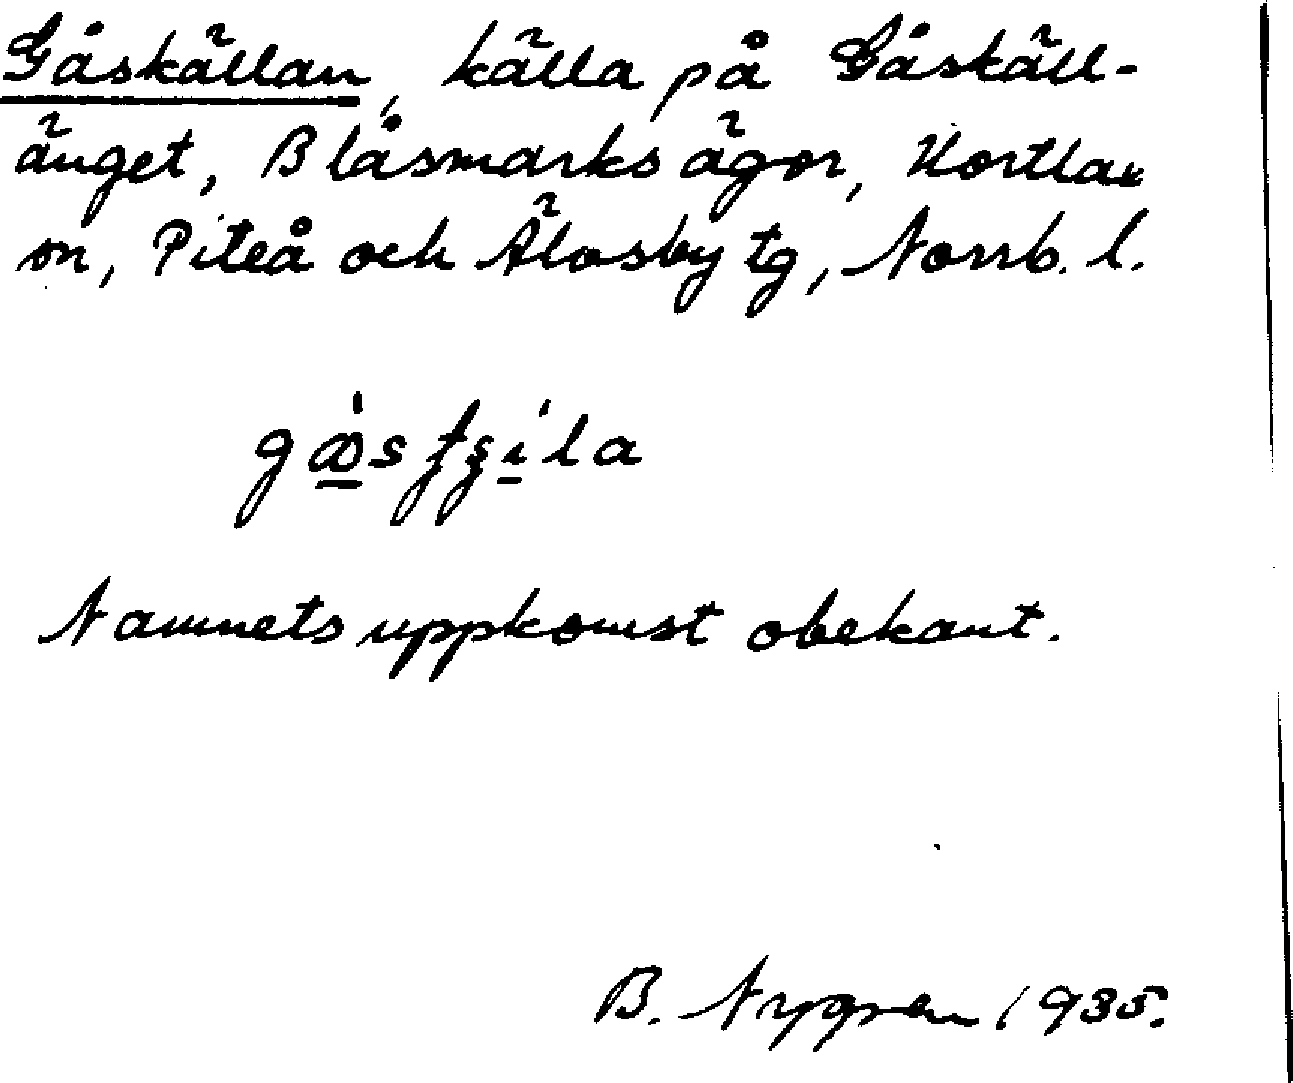 Gåskällan, källa på Gåskäll-
änget, Blåsmarks ägor, Hortlax
sn, Piteå och Älvsby tg, Norrb. l.
Namnets uppkomst obekant.
B. Nygren 1935.